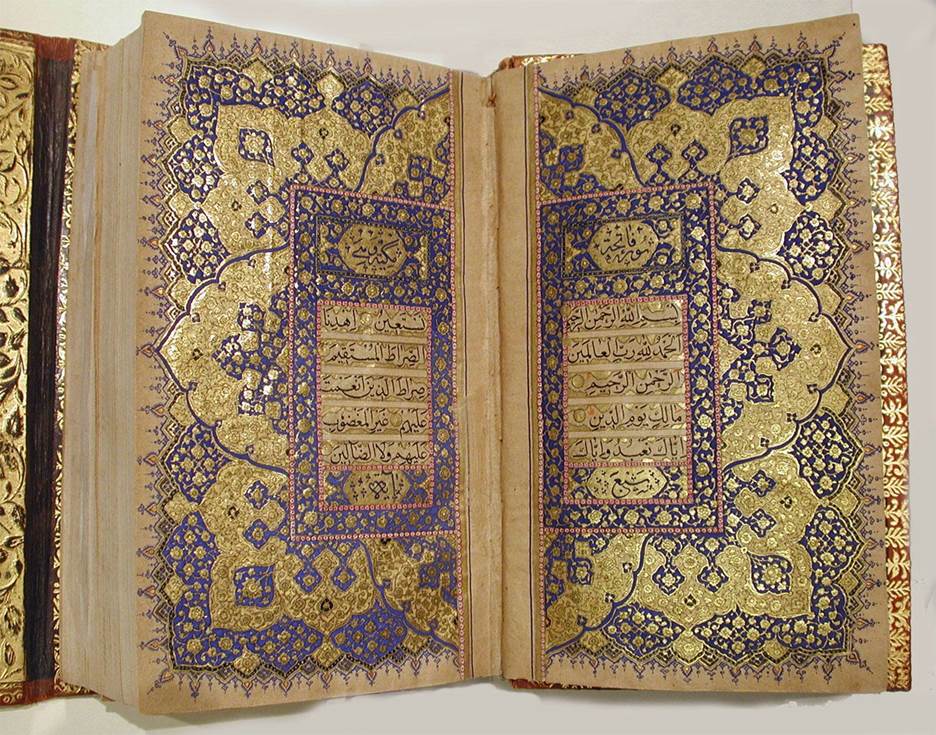 سورة فاتحة
بسم الله الرحمن الرحيم
الحمد لله رب العالمين
الرحمن الرحيم
مالك يوم الدين
اياك نعبد واياك
سبع
نستعين اهدنا
الصراط المستقيم
صراط الذين انعمت
عليهم غير المغضوب
عليهم ولا الضالين